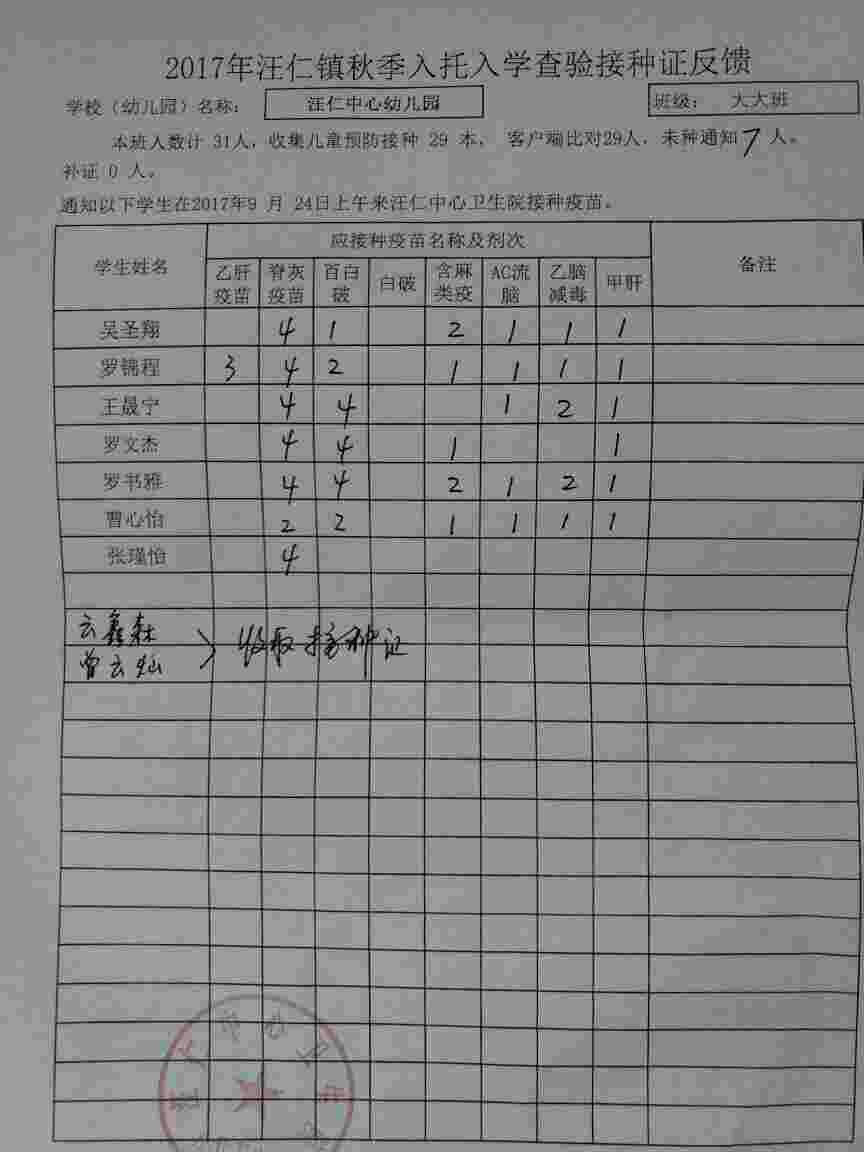 2017年汪仁镇秋季入托入学查验接种证反馈
学校（幼儿园）名称： 汪仁中心幼儿园 班级： 大大班
本班人数计 31人，收集儿童预防接种 29 本， 客户端比对29人，未种通知 7 人。
补证 0 人。
通知以下学生在2017年9 月 24日上午来汪仁中心卫生院接种疫苗。
学生姓名 应接种疫苗名称及剂次 备注
乙肝疫苗 脊灰疫苗 百白破 白破 含麻类疫 AC流脑 乙脑减毒 甲肝
吴圣翔 4 1 2 1 1 1
罗锦程 3 4 2 1 1 1 1
王晟宁 4 4 1 2 1
罗文杰 4 4 1 1
罗书雅 4 4 2 1 2 1
曹心怡 2 2 1 1 1 1
张瑾怡 4
云鑫森
曾云灿 〉 收取接种证
仁中心卫生